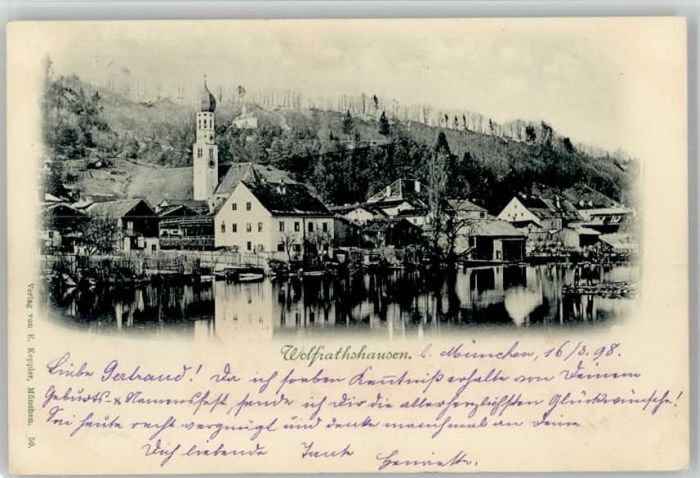 Wolfrathshausen. b. München, 16/3. 98.
Liebe Gertraud! Da ich soeben Kenntniß erhalte von Deinem
Geburts- & Namensfest, sende ich Dir die allerherzlichsten Glückwünsche!
Sei heute recht vergnügt und denke manchmal an Deine
Dich liebende Tante Henriette.
Verlag von E. Keppler, München. 50.